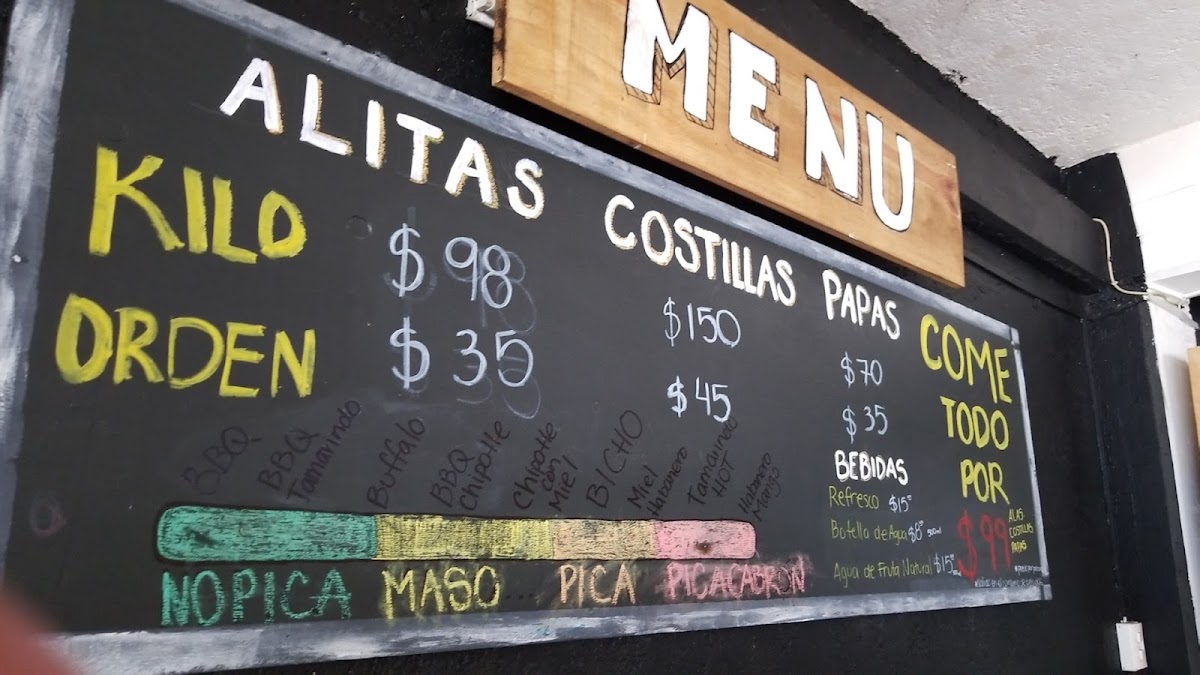 MENU
ALITAS COSTILLAS PAPAS
KILO $98 $150 $70
ORDEN $35 $45 $35
BBQ
BBQ Tamarindo
Buffalo
BBQ Chipotle
Chipotle con Miel
BICHO
Miel Habanero
Tamarindo HOT
Habanero Mango
NO PICA MASO.... PICA PICACABRON
BEBIDAS
Refresco $15
Botella de Agua $8 500ml
Agua de Fruta Natural $15
COME
TODO
POR
$99
ALAS
COSTILLAS
PAPAS